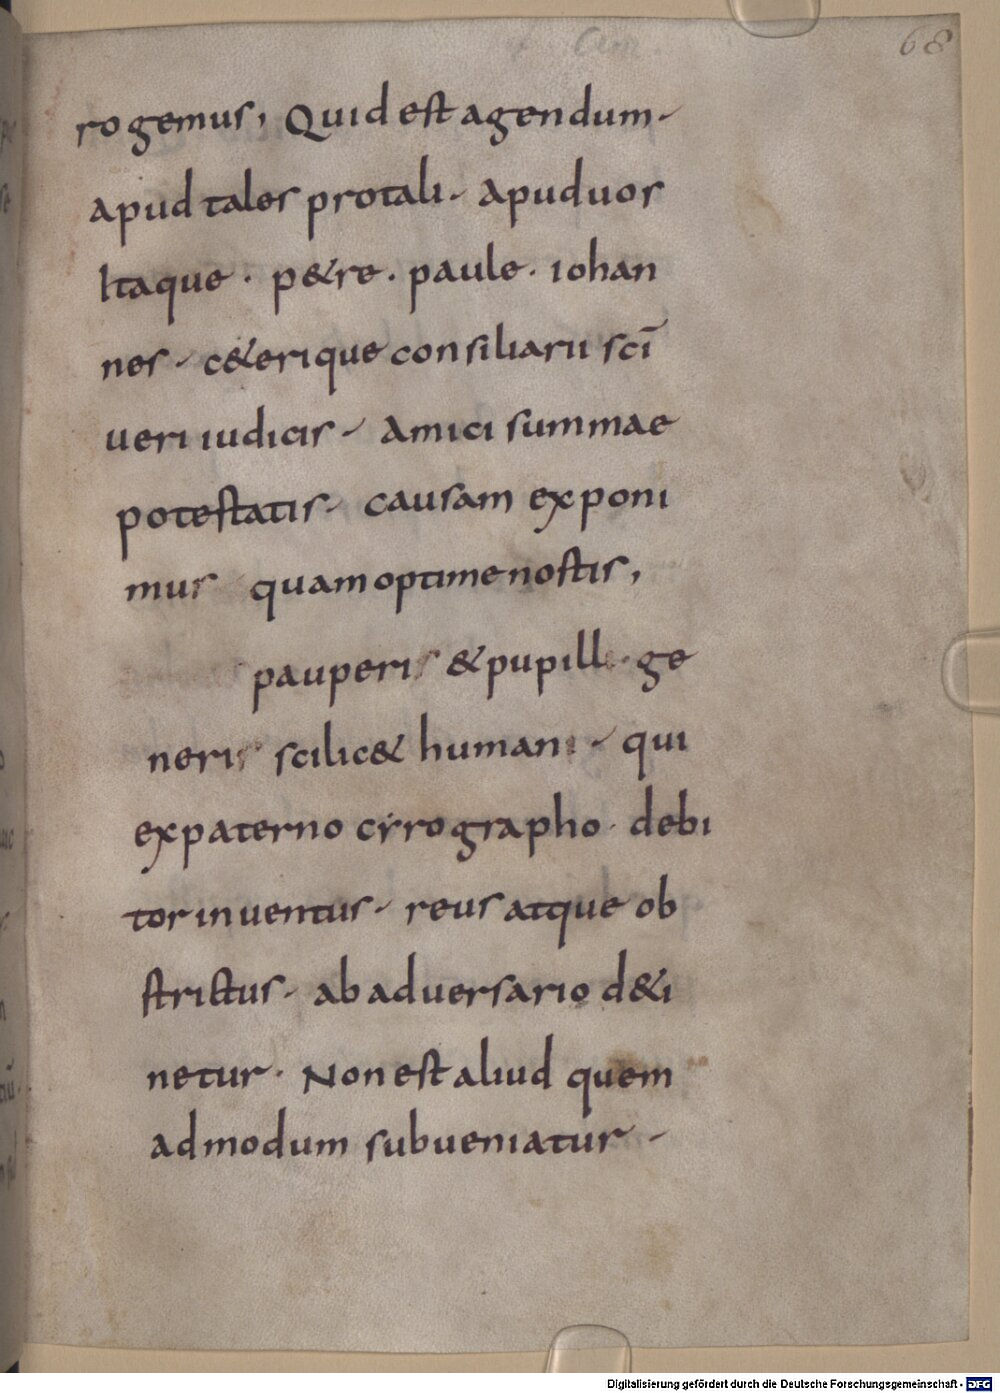 68
rogemus, Quid est agendum.
apud tales pro tali. Apud uos
Itaque. p&re. paule. iohan
nes. c&erique consiliarii scī
ueri iudicis. Amici summae
potestatis. causam exponi
mus quam optime nostis,
pauperis & pupilli. ge
neris scilic& humani. qui
ex paterno cyrographo. debi
tor inuentus. reus atque ob
strictus. ab aduersario d&i
netur. Non est aliud quem
admodum subueniatur.
Digitalisierung gefördert durch die Deutsche Forschungsgemeinschaft - DFG